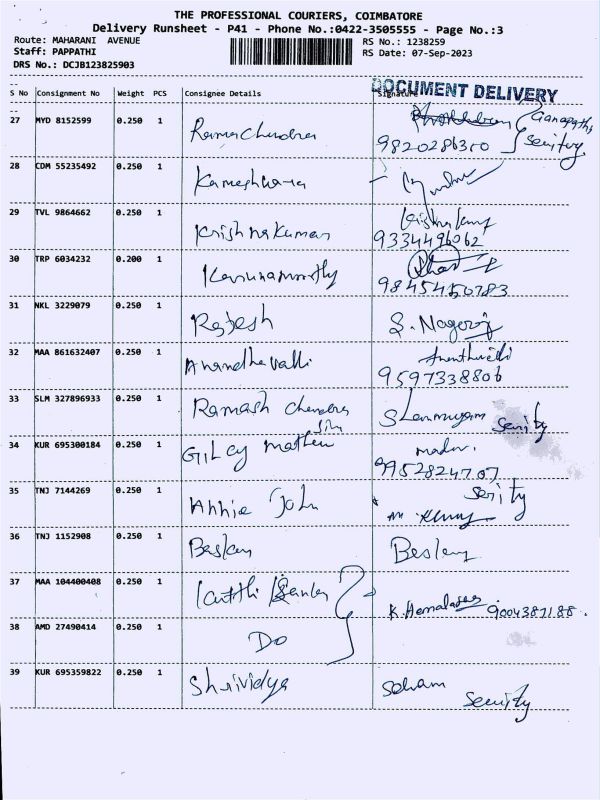 THE PROFESSIONAL COURIERS, COIMBATORE
Delivery Runsheet - P41 - Phone No.:0422-3505555 - Page No.:3
Route: MAHARANI AVENUE RS No.: 1238259
Staff: PAPPATHI RS Date: 07-Sep-2023
DRS No.: DCJB123825903
DOCUMENT DELIVERY
S No Consignment No Weight PCS Consignee Details Signature
27 MYD 8152599 0.250 1 Ramachendra Ganapathi
9820286310 Serity
28 CDM 55235492 0.250 1 Kameshwara
29 TVL 9864662 0.250 1 Krishnakumar
9334496062
30 TRP 6034232 0.200 1 Karunamoorthy
9845450783
31 NKL 3229079 0.250 1 Rajesh S. Nagaraj
32 MAA 861632407 0.250 1 Anandhavalli
9597338806
33 SLM 327896933 0.250 1 Ramash Chendra Shanmugam Serity
34 KUR 695300184 0.250 1 Gilcy Mathew
9952824707
35 TNJ 7144269 0.250 1 Annie John Serity
36 TNJ 1152908 0.250 1 Beslan Beslen
37 MAA 104400408 0.250 1 K. Hemalatha 9004387188
38 AMD 27490414 0.250 1 Do
39 KUR 695359822 0.250 1 Shrividya Selvam Serity